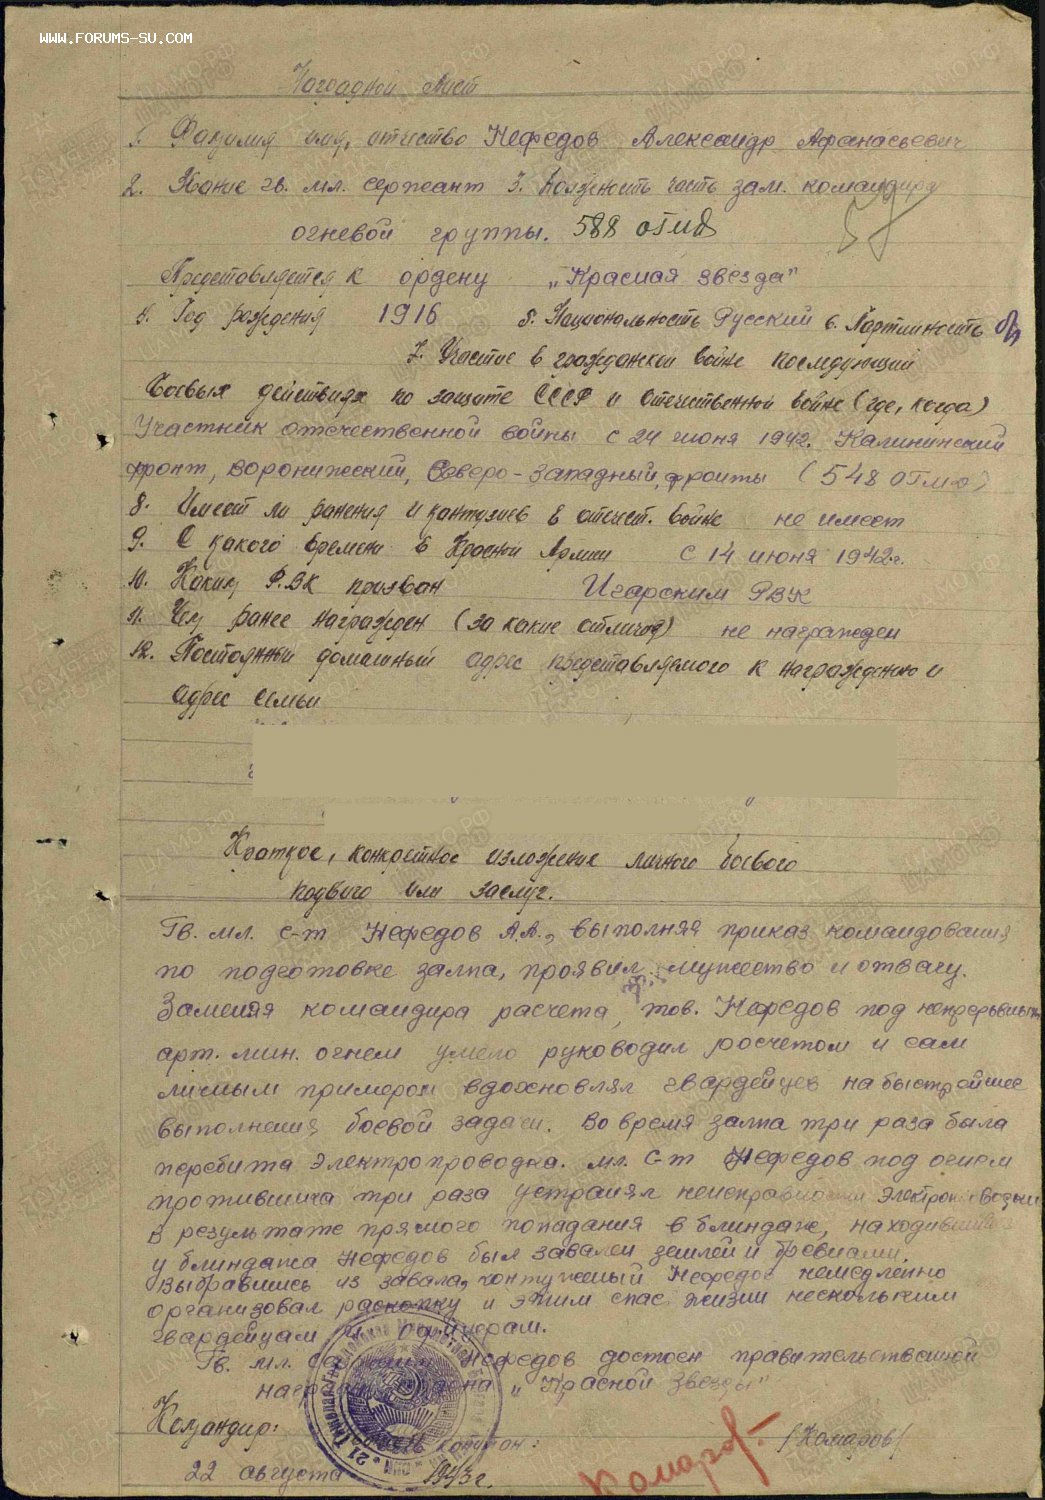 WWW.FORUMS-SU.COM
Наградной лист
1. Фамилия имя, отчество Нефедов Александр Афанасьевич
2. Звание гв. мл. сержант 3. Должность часть зам. командира
огневой группы. 588 огмд
Представляется к ордену „Красная звезда"
4. Год рождения 1916 5. Национальность Русский 6. Партийность б/п
7. Участие в гражданской войне последующий
боевых действиях по защите СССР и отечественной войне (где, когда)
Участник отечественной войны с 24 июня 1942. Калининский
фронт, воронижский, Северо-западный, фронты (548 огмд)
8. Имеет ли ранения и контузиев в отечест. войне не имеет
9. С какого времени в Красной Армии с 14 июня 1942г.
10. Каким РВК призван Игарским РВК
11. Чем ранее награжден (за какие отличия) не награжден
12. Постоянный домашный адрес представляемого к награждению и
адрес семьи
Краткое, конкретное изложение личного боевого
подвига или заслуг.
Гв. мл. с-т Нефедов А.А., выполняя приказ командования
по подготовке залпа, проявил мужество и отвагу.
Заменяя командира расчета, тов. Нефедов под непрерывным
арт. мин. огнем умело руководил расчетом и сам
личным примером вдохновлял гвардейцев на быстрейшее
выполнения боевой задачи. Во время залпа три раза была
перебита электропроводка. мл. с-т Нефедов под огнем
противника три раза устранял неисправности электропроводки
В результате прямого попадания в блиндаж, находившийся
у блиндажа Нефедов был завален землей и бревнами.
Выбравшись из завала, контуженый Нефедов немедленно
организовал раскопку и этим спас жизни нескольким
гвардейцам и офицерам.
Гв. мл. сержант Нефедов достоен правительственной
награды ордена „Красной Звезды"
Командир: /Комаров/
22 августа 1943г.
Комаров